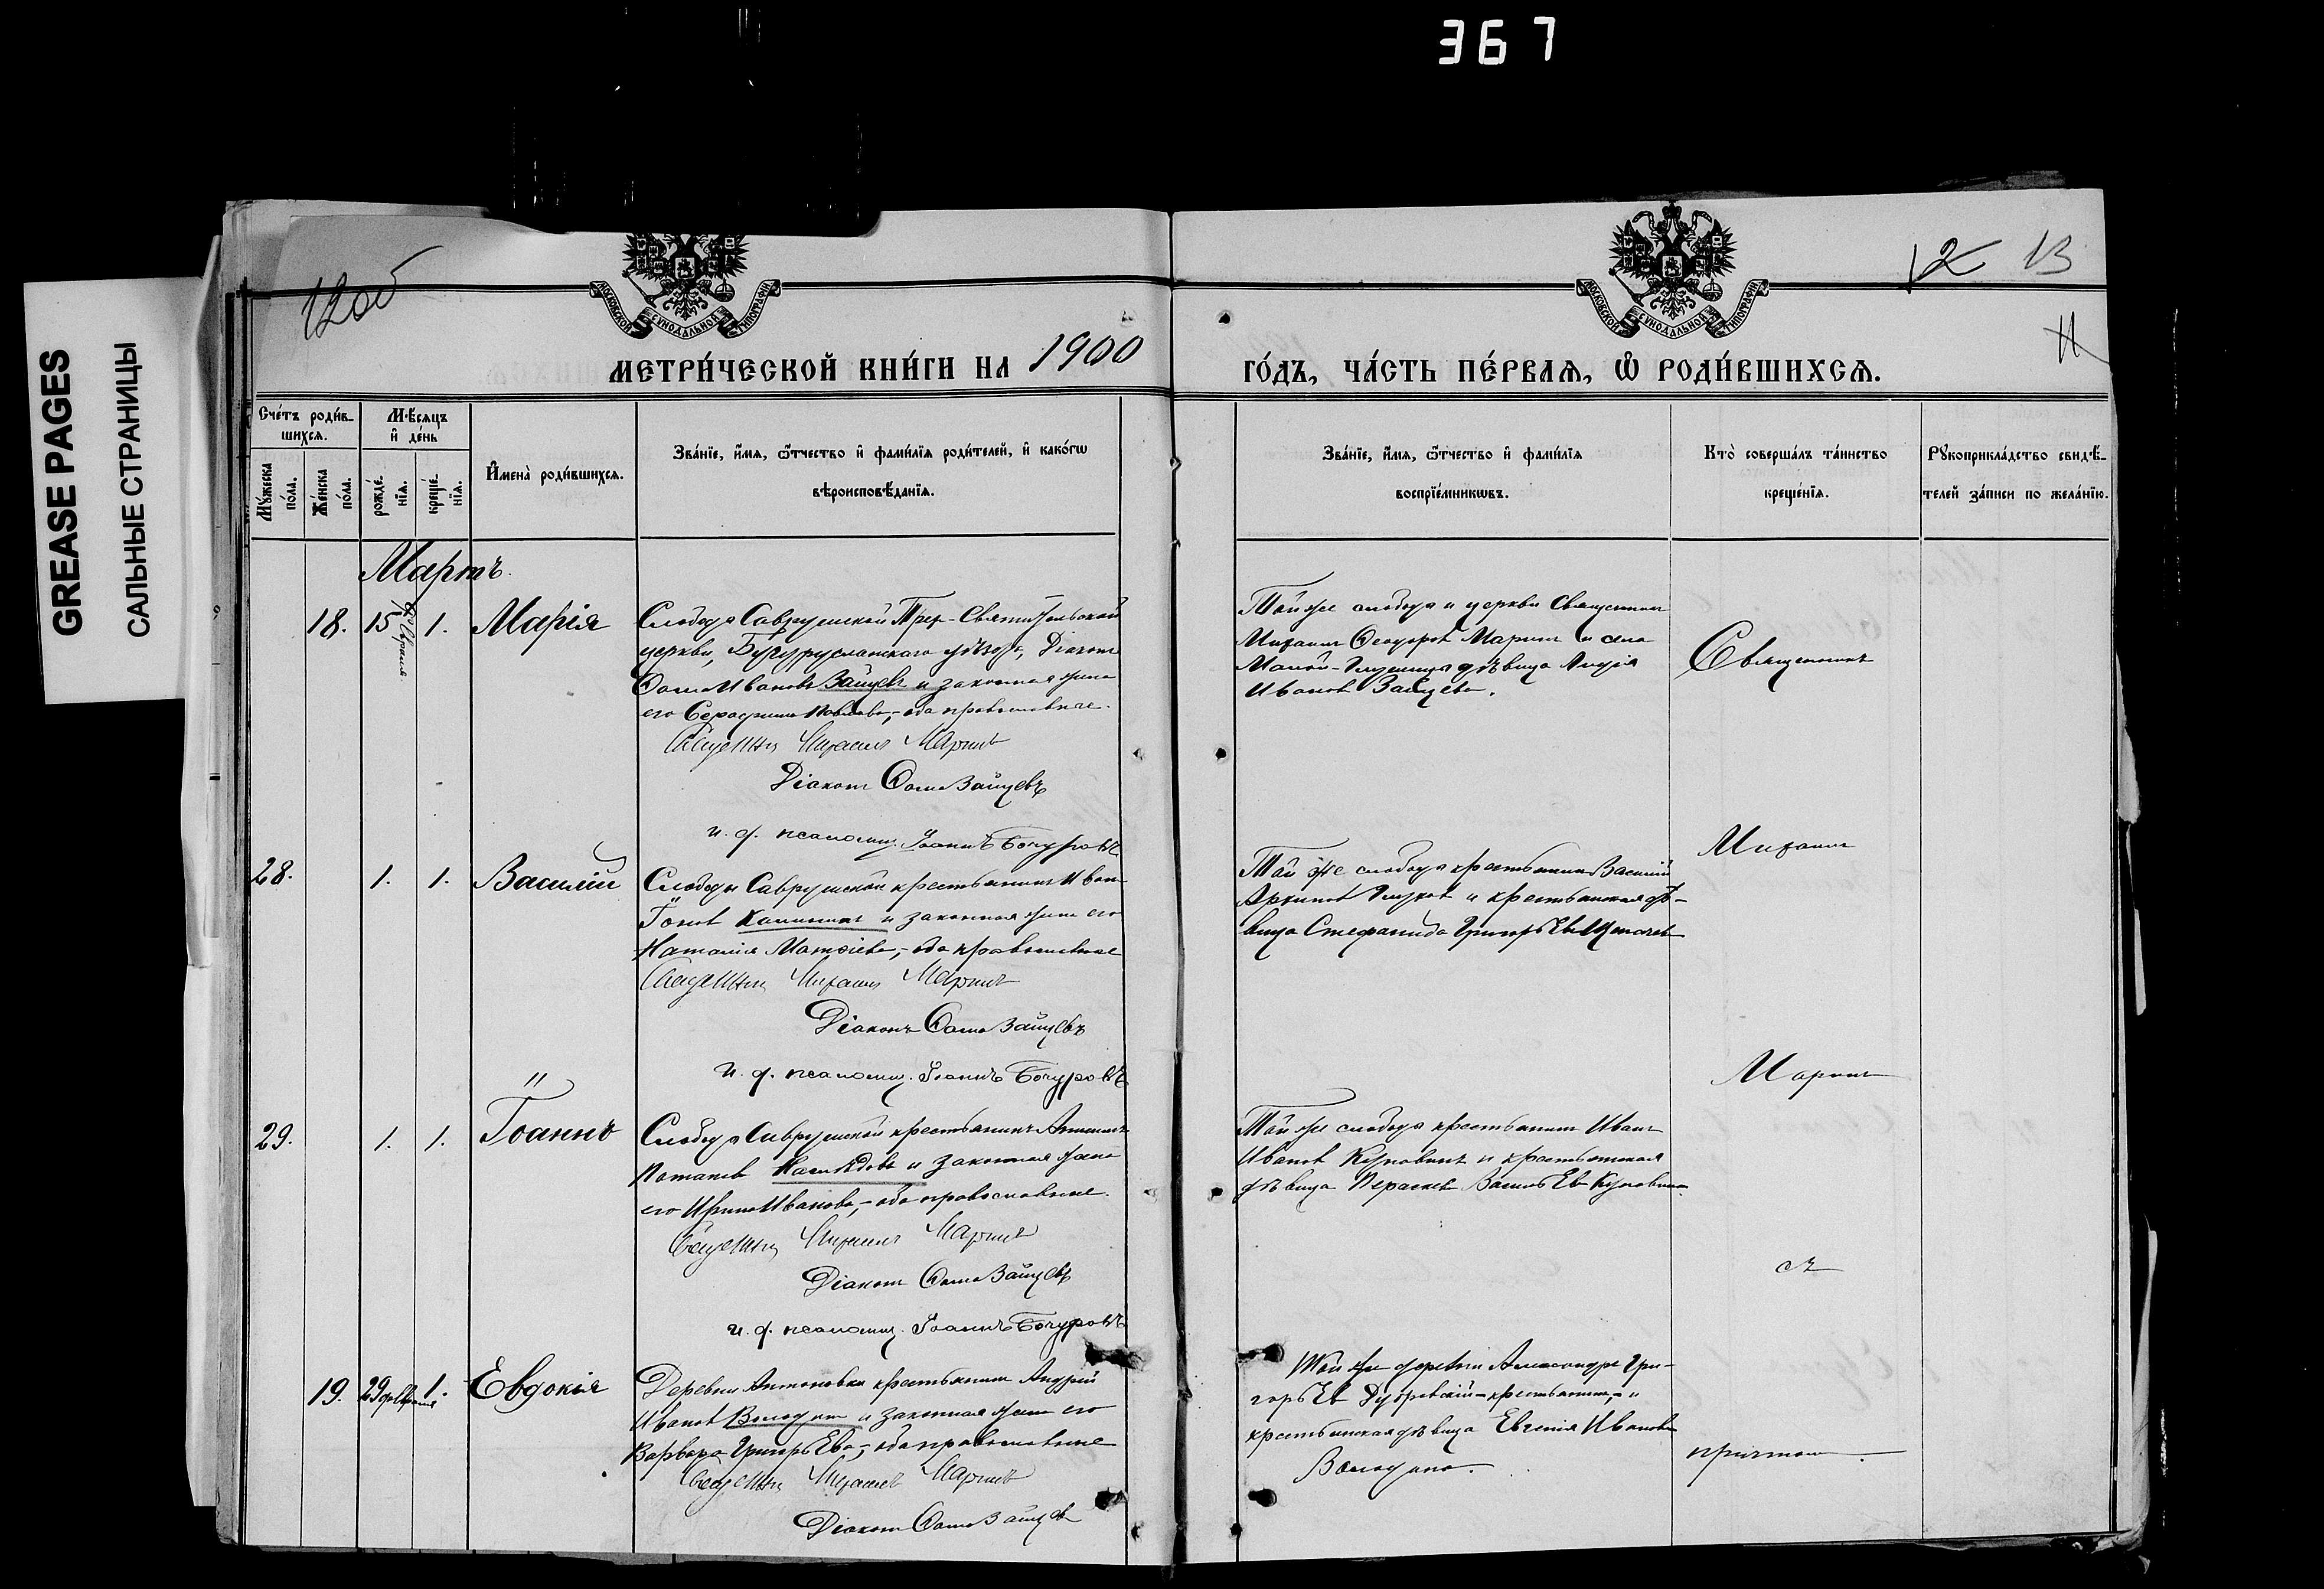 367
GREASE PAGES
САЛЬНЫЕ СТРАНИЦЫ
12об
12 13
11
МОСКОВСКОЙ СѴНОДАЛЬНОЙ ТИПОГРАФІИ
МОСКОВСКОЙ СѴНОДАЛЬНОЙ ТИПОГРАФІИ
МЕТРИ́ЧЕСКОЙ КНИ́ГИ НА 1900
ГО́ДЪ, ЧА́СТЬ ПЕ́РВАѦ, Ѡ҆ РОДИ́ВШИХСѦ.
Сче́тъ роди́в-
шихсѧ.
Мꙋ́жеска по́ла.
Же́нска по́ла.
Мѣ́сѧцъ
и҆ де́нь
рожде́-
нїѧ.
креще́-
нїѧ.
И҆мена̀ роди́вшихсѧ.
Зва́нїе, и҆́мѧ, ѻ҆́тчество и҆ фами́лїѧ роди́телей, и҆ како́гѡ
вѣроисповѣ́данїѧ.
Зва́нїе, и҆́мѧ, ѻ҆́тчество и҆ фами́лїѧ
воспрїе́мникѡвъ.
Кто̀ соверша́лъ та́инство
креще́нїѧ.
Рꙋкоприкла́дство свидѣ́-
телей за́писи по жела́нїю.
Мартъ.
18. 15 февраля 1. Марія
Слободы Саврушской Трех-Святительской
церкви, Бугурусланскаго уѣзда, Діаконъ
Ѳома Ивановъ Зайцевъ и законная жена
его Серафима Павлова,- оба православные.
Священникъ Михаилъ Маринъ
Діаконъ Ѳома Зайцевъ
и. д. псаломщ. Іоаннъ Бочуровъ
Той же слободы и церкви Священникъ
Михаилъ Ѳеодоровъ Маринъ и села
Малой-Глушицы дѣвица Лидія
Иванов Зайцева.
Священникъ
28. 1. 1. Василій
Слободы Саврушской крестьянинъ Иванъ
Іоновъ Калининъ и законная жена его
Наталія Матѳіева,- оба православные
Священникъ Михаилъ Маринъ
Діаконъ Ѳома Зайцевъ
и. д. псаломщ. Іоаннъ Бочуровъ
Той же слободы крестьянинъ Василій
Архиповъ и крестьянская дѣ-
вица Стефанида Григорьев
Михаилъ
29. 1. 1. Іоаннъ
Слободы Саврушской крестьянинъ
Потаповъ Наслѣдовъ и законная жена
его Ирина Иванова,- оба православные.
Священникъ Михаилъ Маринъ
Діаконъ Ѳома Зайцевъ
и. д. псаломщ. Іоаннъ Бочуровъ
Той же слободы крестьянинъ Иванъ
Ивановъ и крестьянская
дѣвица Параскев Васильев
Маринъ
съ
19. 29 февраля 1. Евдокія
Деревни Антоновки крестьянинъ Андрей
Ивановъ Володинъ и законная жена его
Варвара Григорьева,- оба православные
Священникъ Михаилъ Маринъ
Діаконъ Ѳома Зайцевъ
Той же деревни Александръ Гри-
горьев Дубровскій - крестьянинъ,- и
крестьянская дѣвица Евгенія Иванова
Володина.
причтомъ.